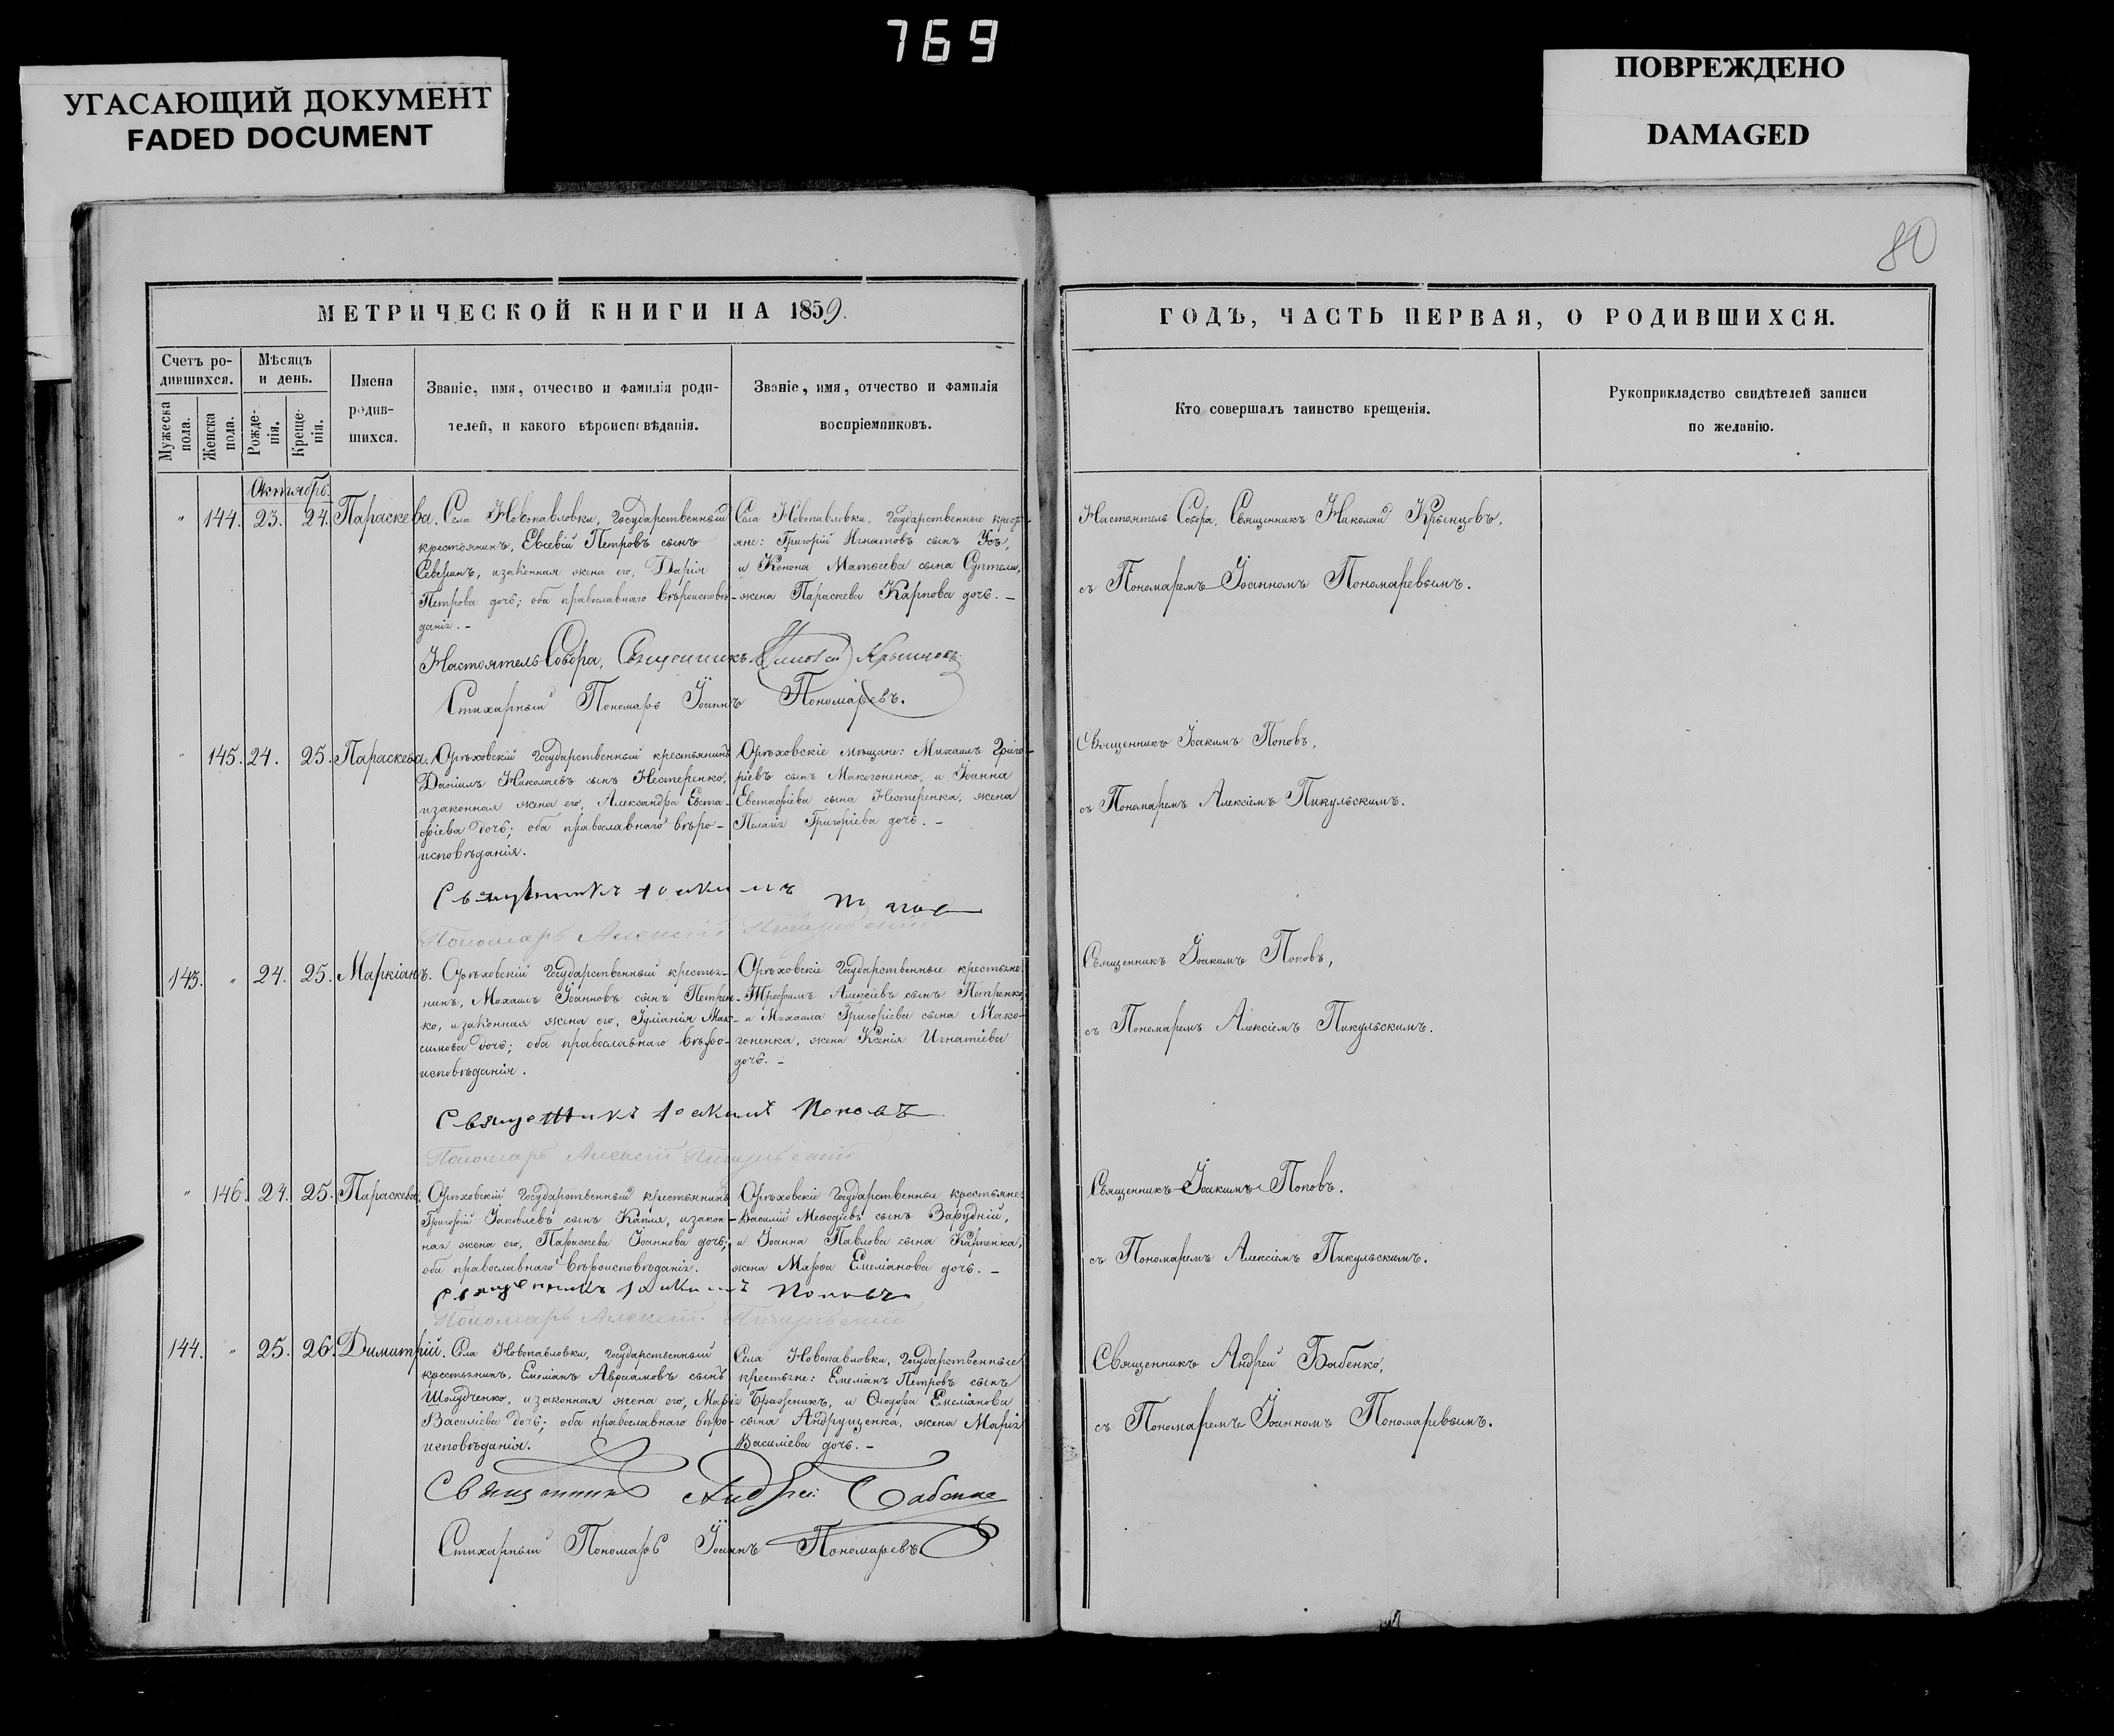 769
УГАСАЮЩИЙ ДОКУМЕНТ
FADED DOCUMENT
ПОВРЕЖДЕНО
DAMAGED
80
МЕТРИЧЕСКОЙ КНИГИ НА 1859.
Счетъ ро-
дившихся.
Мужеска пола.
Женска пола.
Мѣсяцъ
и день.
Рожде-
нія.
Креще-
нія.
Имена
родив-
шихся.
Званіе, имя, отчество и фамилія роди-
телей, и какого вѣроисповѣданія.
Званіе, имя, отчество и фамилія
воспріемниковъ.
Октябрь.
" 144. 23. 24. Параскева. Села Новопавловки, Государственный
крестьянинъ, Евсевій Петровъ сынъ
Северинъ, и законная жена его, Дарія
Петрова дочь; оба православнаго вѣроисповѣ-
данія. –
Села Новопавловки, Государственные крестья-
яне: Григорій Игнатовъ сынъ Усъ,
и Конона Матѳеева сына
жена Параскева Карпова дочь. –
Настоятель Собора, Священникъ Николай Крынцовъ
Стихарный Пономарь Іоаннъ Пономаревъ.
" 145. 24. 25. Параскева. Орѣховскій Государственный крестьянинъ
Даніилъ Николаевъ сынъ Нестеренко,
и законная жена его, Александра Евста-
фіева дочь; оба православнаго вѣро-
исповѣданія.
Орѣховскіе Мѣщане: Михаилъ Григо-
ріевъ сынъ Макогоненко, и Іоанна
Евстафіева сына Нестеренка, жена
Пелагія Григоріева дочь. –
Священникъ Іоакимъ Поповъ
Пономарь Алексій Пикульскій
143. " 24. 25. Маркіанъ. Орѣховскій Государственный крестья-
нинъ, Михаилъ Іоанновъ сынъ Петрен-
ко, и законная жена его, Іуліанія Мак-
симова дочь; оба православнаго вѣро-
исповѣданія.
Орѣховскіе Государственные крестьяне:
Трофимъ Алексіевъ сынъ Петренко,
и Михаила Григоріева сына Мако-
гоненка, жена Ксенія Игнатіева
дочь. –
Священникъ Іоакимъ Поповъ
Пономарь Алексій Пикульскій
" 146. 24. 25. Параскева. Орѣховскій Государственный крестьянинъ
Григорій Іаковлевъ сынъ Капля, и закон-
ная жена его, Параскева Іоаннова дочь;
оба православнаго вѣроисповѣданія.
Орѣховскіе Государственные крестьяне:
Василій Меѳодіевъ сынъ Зарудній,
и Іоанна Павлова сына Карпенка,
жена Марѳа Емеліанова дочь. –
Священникъ Іоакимъ Поповъ
Пономарь Алексій Пикульскій
144. " 25. 26. Димитрій. Села Новопавловки, Государственный
крестьянинъ, Емеліанъ Авраамовъ сынъ
Шолудченко, и законная жена его, Марія
Василіева дочь; оба православнаго вѣро-
исповѣданія.
Села Новопавловки, Государственные
крестьяне: Емеліанъ Петровъ сынъ
Бражникъ, и Ѳеодора Емеліанова
сына Андрущенка, жена Марія
Василіева дочь. –
Священникъ Андрей Бабенко
Стихарный Пономарь Іоаннъ Пономаревъ
ГОДЪ, ЧАСТЬ ПЕРВАЯ, О РОДИВШИХСЯ.
Кто совершалъ таинство крещенія.
Рукоприкладство свидѣтелей записи
по желанію.
Настоятель Собора, Священникъ Николай Крынцовъ,
съ Пономаремъ Іоанномъ Пономаревымъ.
Священникъ Іоакимъ Поповъ,
съ Пономаремъ Алексіемъ Пикульскимъ.
Священникъ Іоакимъ Поповъ,
съ Пономаремъ Алексіемъ Пикульскимъ.
Священникъ Іоакимъ Поповъ.
съ Пономаремъ Алексіемъ Пикульскимъ.
Священникъ Андрей Бабенко,
съ Пономаремъ Іоанномъ Пономаревымъ.